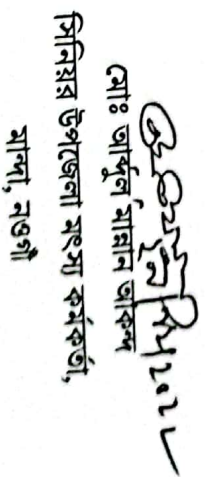 মোঃ আব্দুল মান্নান আকন্দ
সিনিয়র উপজেলা মৎস্য কর্মকর্তা,
মান্দা, নওগাঁ